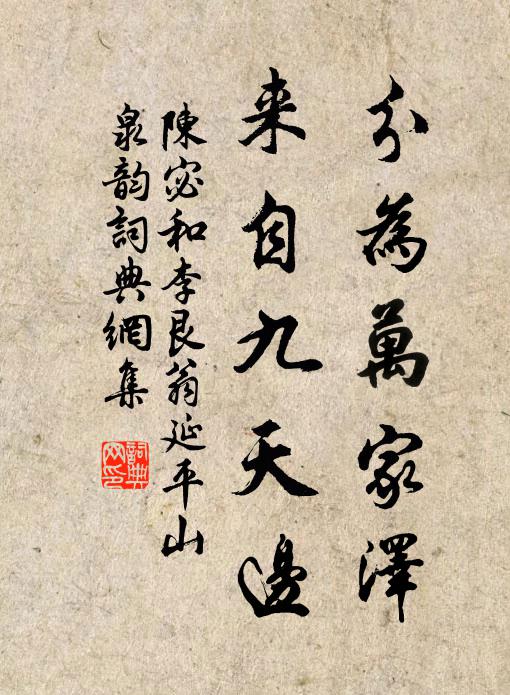 分為萬家澤
来自九天邊
陳宓和李艮翁延平山
泉韵詞典網集
詞典网印